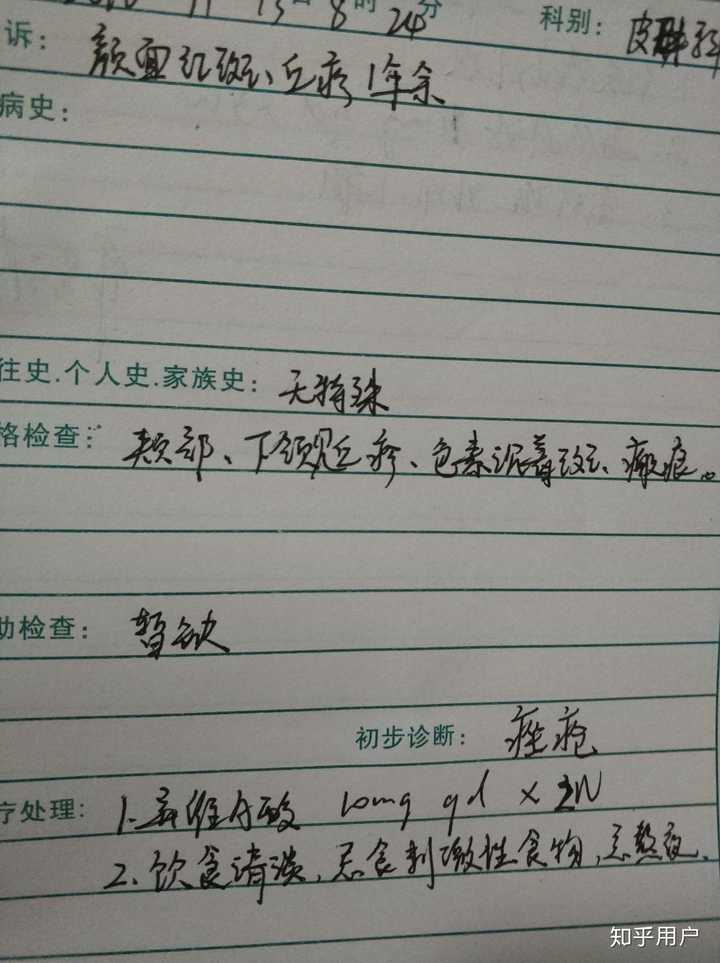 11 月 13 日 8 时 24 分 科别: 皮肤科
诉: 颜面红斑、丘疹1年余
病史:
往史.个人史.家族史: 无特殊
格检查: 颊部、下颌见丘疹、色素沉着斑、瘢痕。
助检查: 暂缺
初步诊断: 痤疮
疗处理: 1.异维A酸 10mg qd × 2W
2.饮食清淡,忌食刺激性食物,忌熬夜.
知乎用户